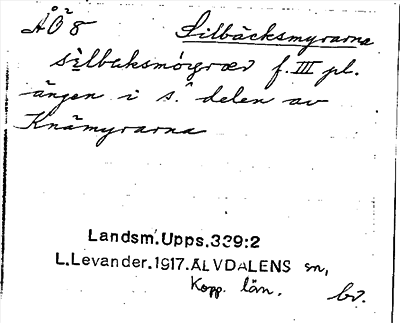 ÅÖ²8 Silbäcksmyrarna
silbaksmörgrær f. III pl.
ängen i s. delen av
Knämyrarna
Landsm.Upps.339:2
L.Levander.1917.ÄLVDALENS sn,
Kopp. län. bv.